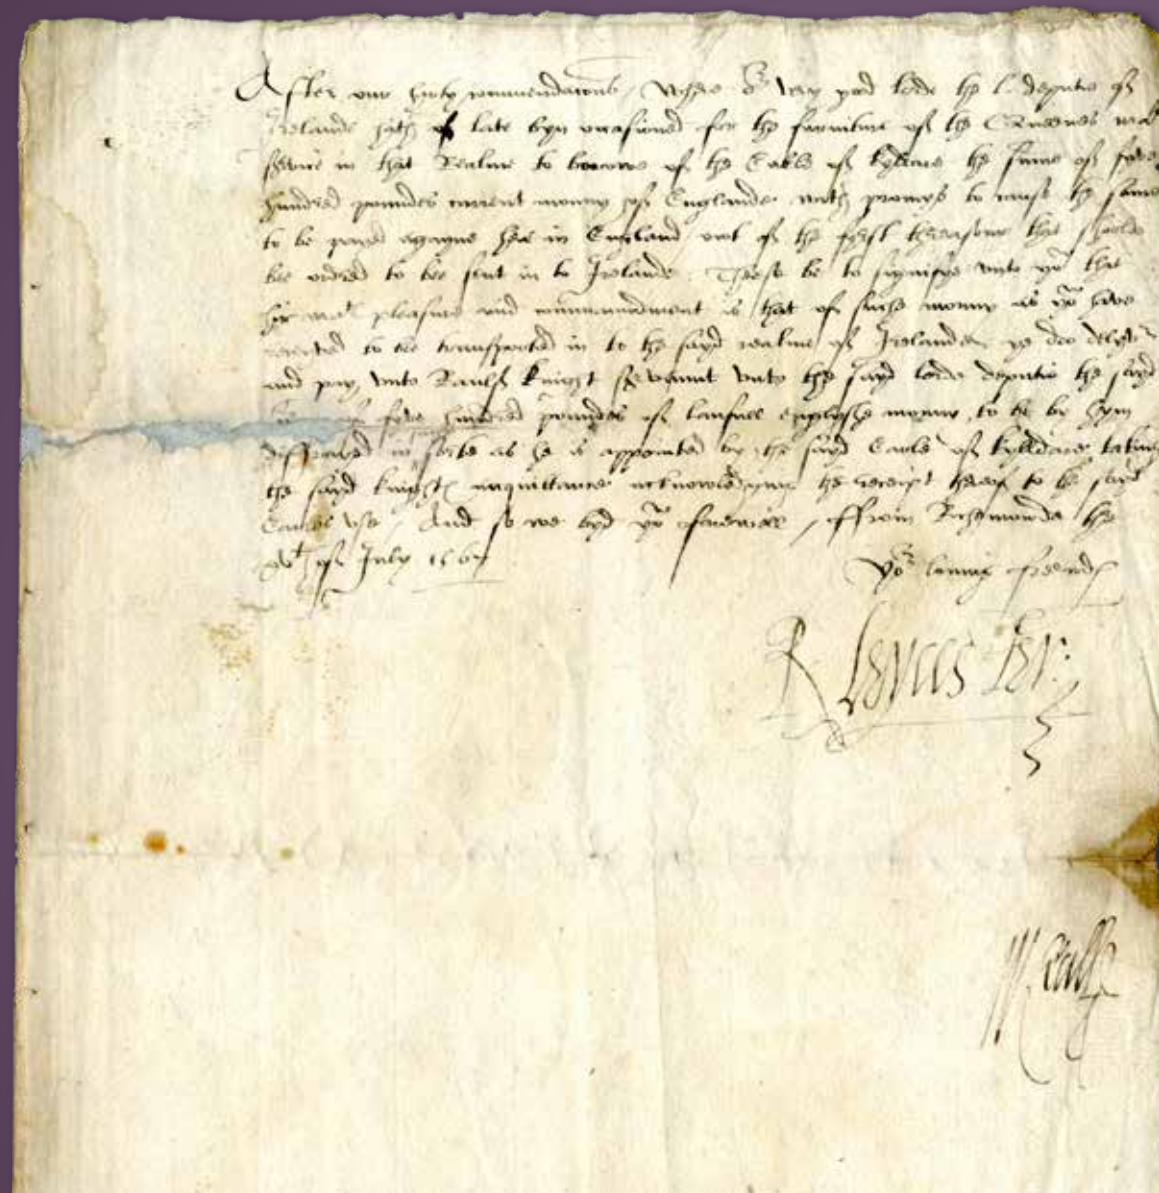 After our harty commendacons / Where or very good lorde the l. deputie of
Irelande hath of late byn occasioned for the furniture of the Queenes mats
servie in that Realme to borrowe of the Earle of Kyldare the some of fyve
hundred poundes currant money of Englande with promys to cause the same
to be payed agayne here in England owt of the fyrst threasure that sholde
be ordred to bee sent in to Irelande. These be to signifye unto you that
hir mats pleasure and commaundment is that of suche money as you have
receved to be transported in to the sayd realme of Irelande ye doo delyver
and pay unto Raulf Knight servaunt unto the sayd lorde deputie the sayd
of fyve hundred poundes of laufull englyshe money, to be by hym
in sorte as he is appointed by the sayd Earle of Kylldare taking
the sayd Knights acquittance acknowledgyng the receipt therof to the sayd
Earles use / And so we byd you farewell / ffrom Richmonde the
of July 156
Yor loving freends
R Leycester
W. Cecill